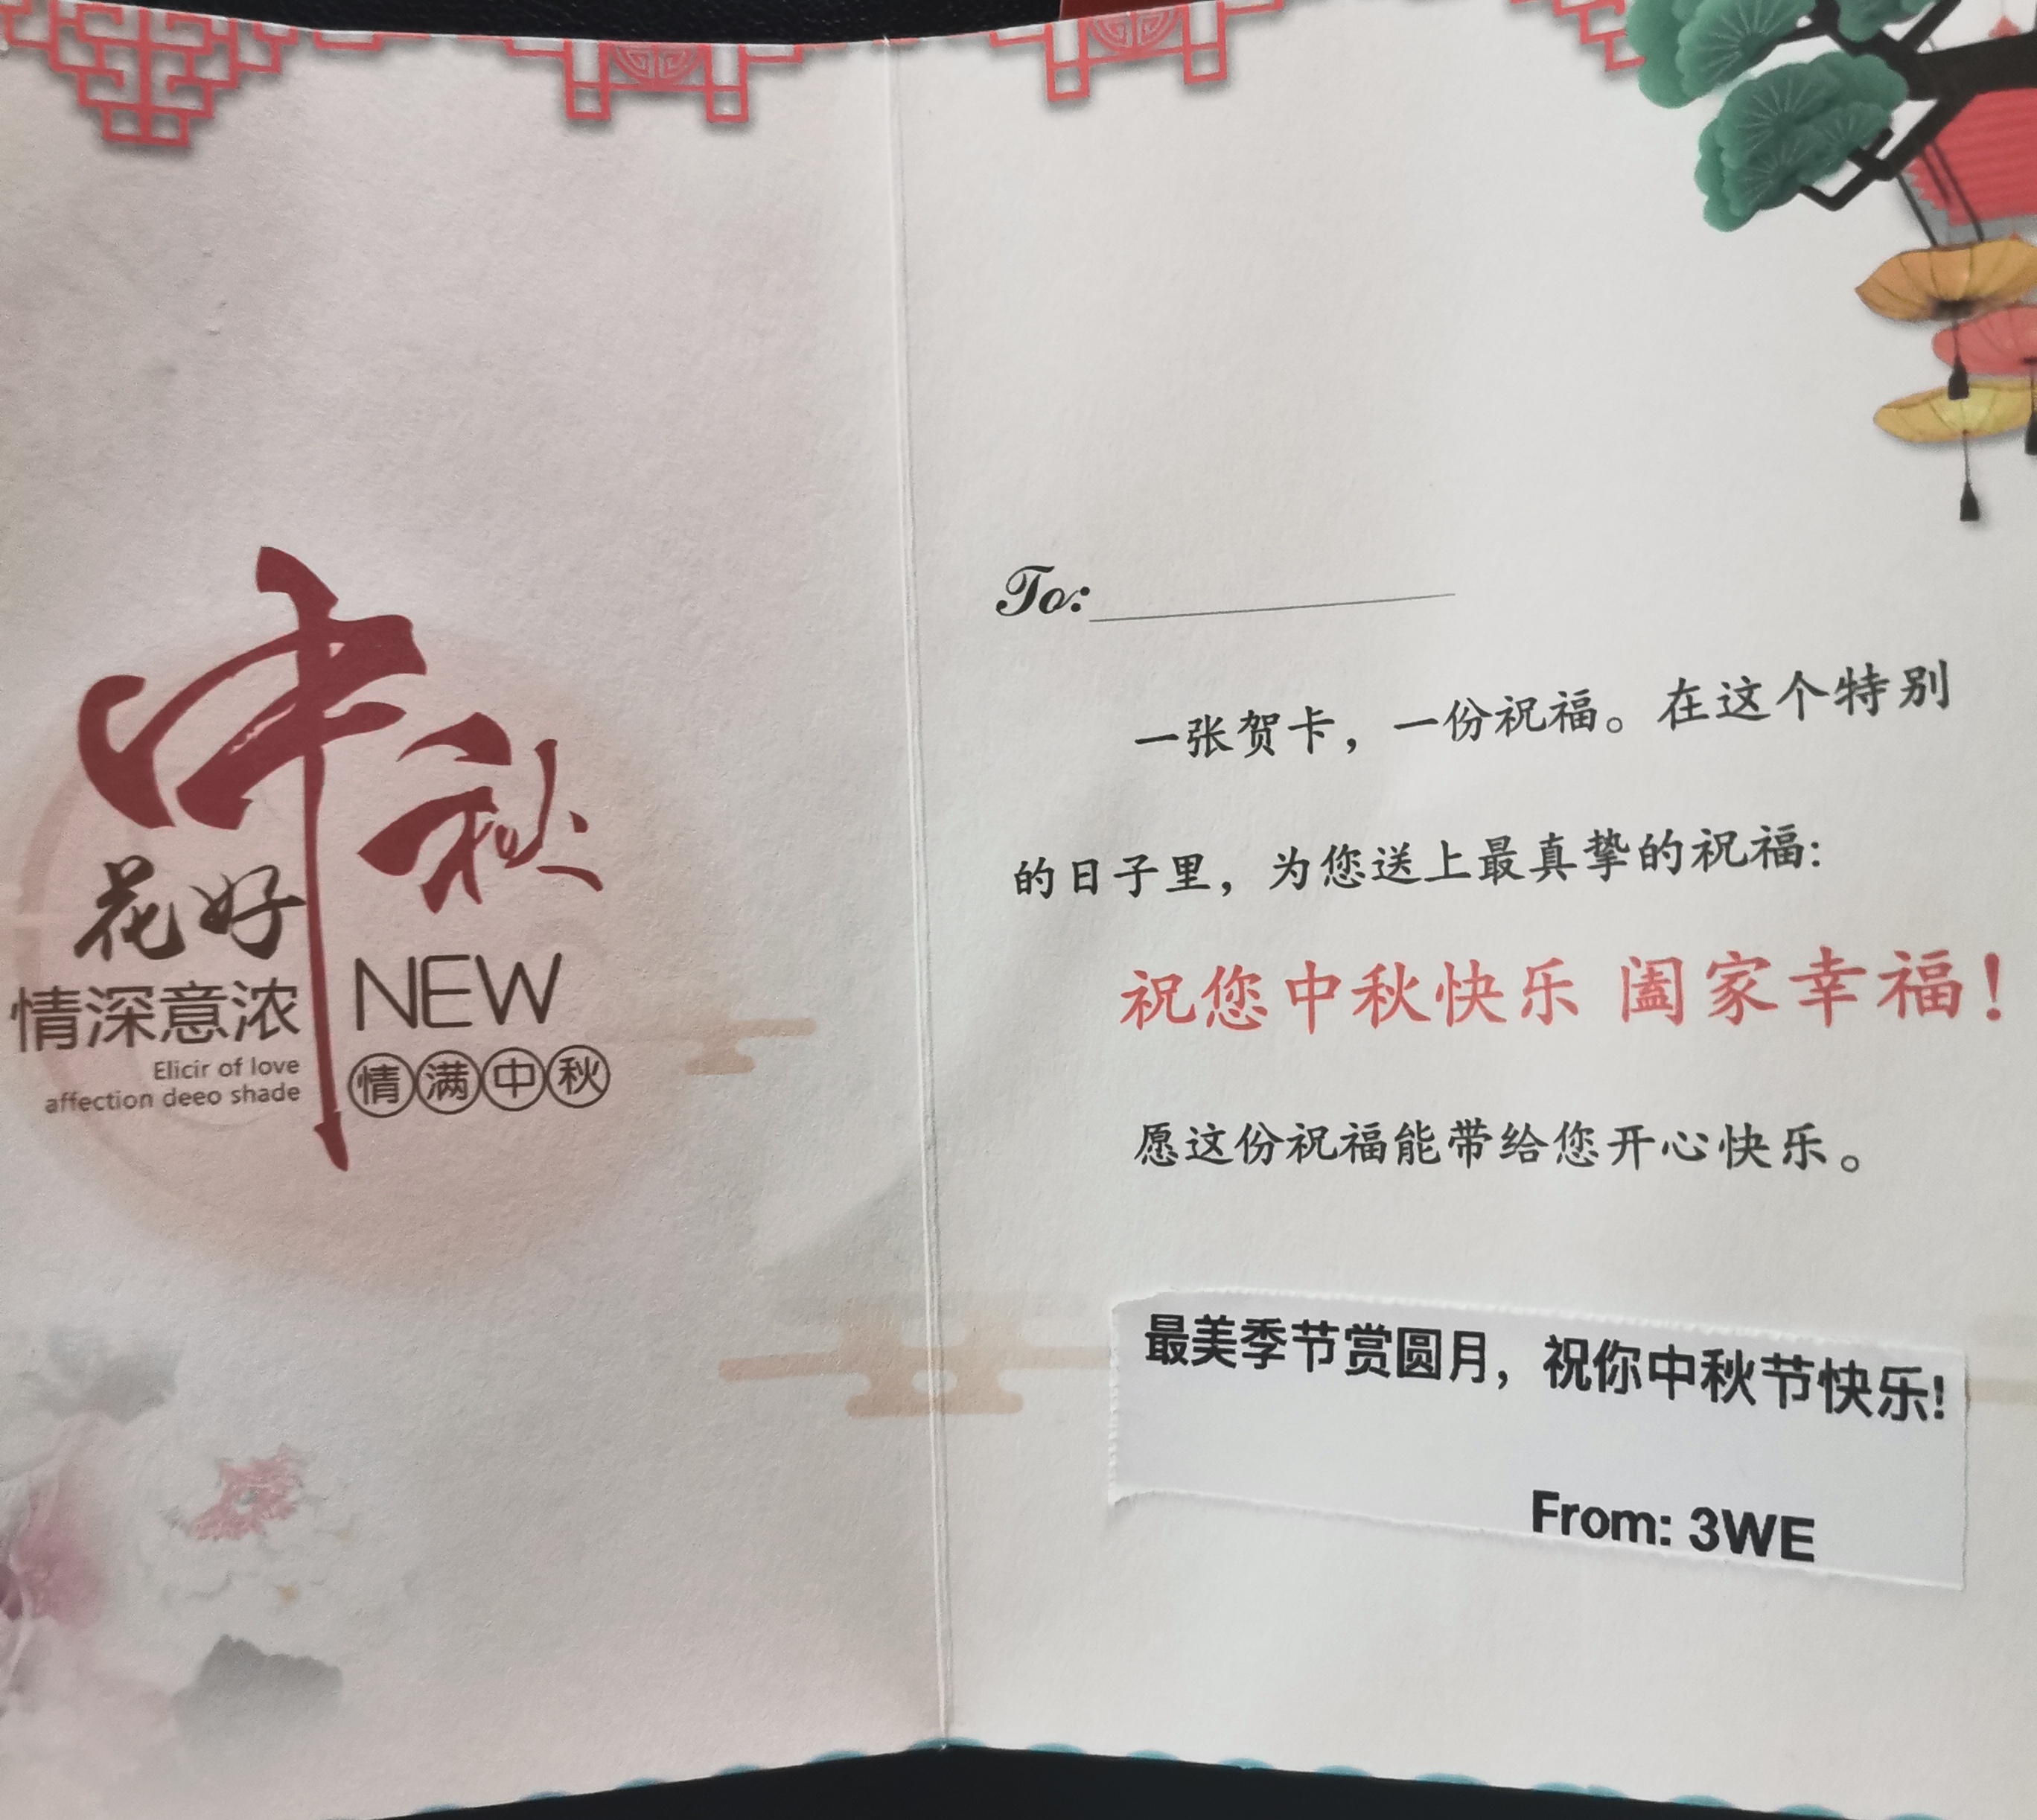 中秋
花好
情深意浓
Elicir of love
affection deeo shade
NEW
情满中秋
To:
一张贺卡，一份祝福。在这个特别
的日子里，为您送上最真挚的祝福：
祝您中秋快乐 阖家幸福！
愿这份祝福能带给您开心快乐。
最美季节赏圆月，祝你中秋节快乐!
From: 3WE